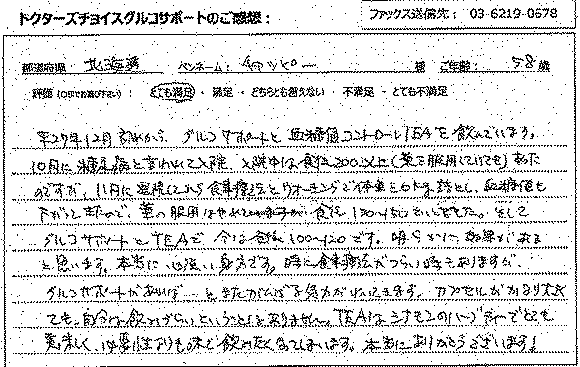 ドクターズチョイスグルコサポートのご感想：
ファックス送信先： 03-6219-0678
都道府県 北海道 ペンネーム： チャッピー 様 ご年齢： 58 歳
評価（○印でお選び下さい）： とても満足 ・ 満足 ・ どちらとも言えない ・ 不満足 ・ とても不満足
年27年12月初めから、グルコサポートと血糖値コントロールTEAを飲んでいます。
10月に糖尿病と言われて入院、入院中は食後200以上(薬を服用していても)あった
のですが、11月に退院してから食事療法とウォーキングで体重も6kg落とし、血糖値も
下がってきたので、薬の服用はやめて 食後130〜150くらいでした。そして
グルコサポートとTEAで、今は食後100〜120です。明らかに効果がある
と思います。本当に心強い身方です。時に食事療法がつらい時もありますが、
グルコサポートがあれば…と、またがんばる気力がわいてきます。カプセルがかなり大
ても、自分は飲みづらいということもありません。TEAはシナモンのハーブティーでとても
美味しく、必要性よりも味で飲みたくなってしまいます。本当にありがとうございます！